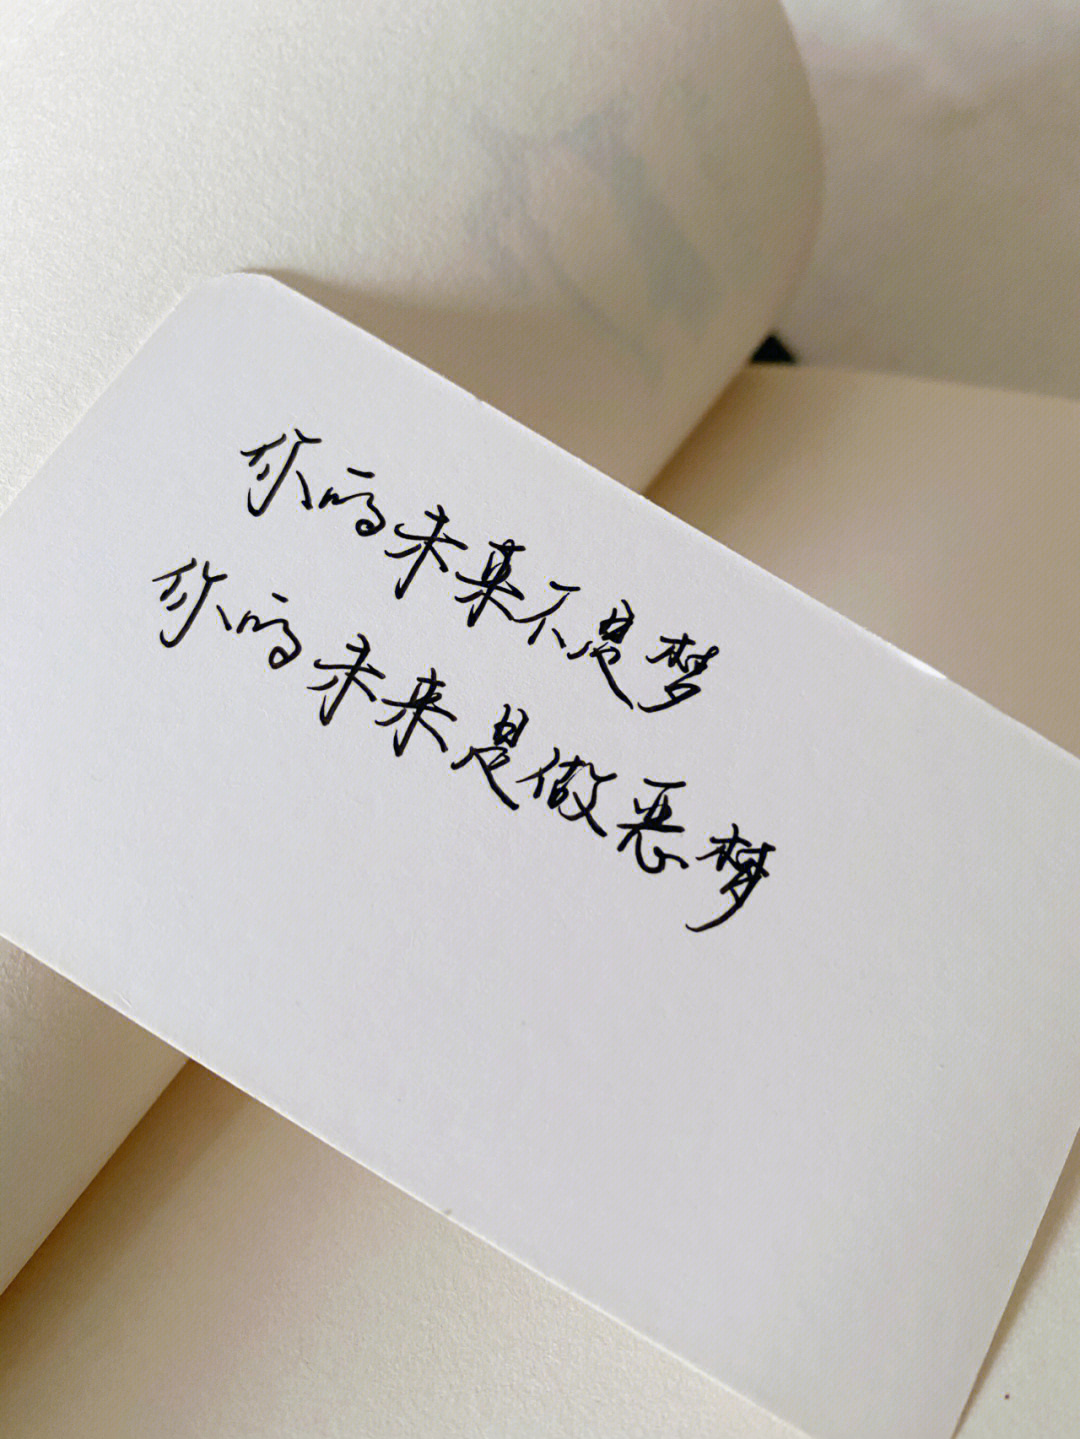 你的未来不是梦
你的未来是做恶梦